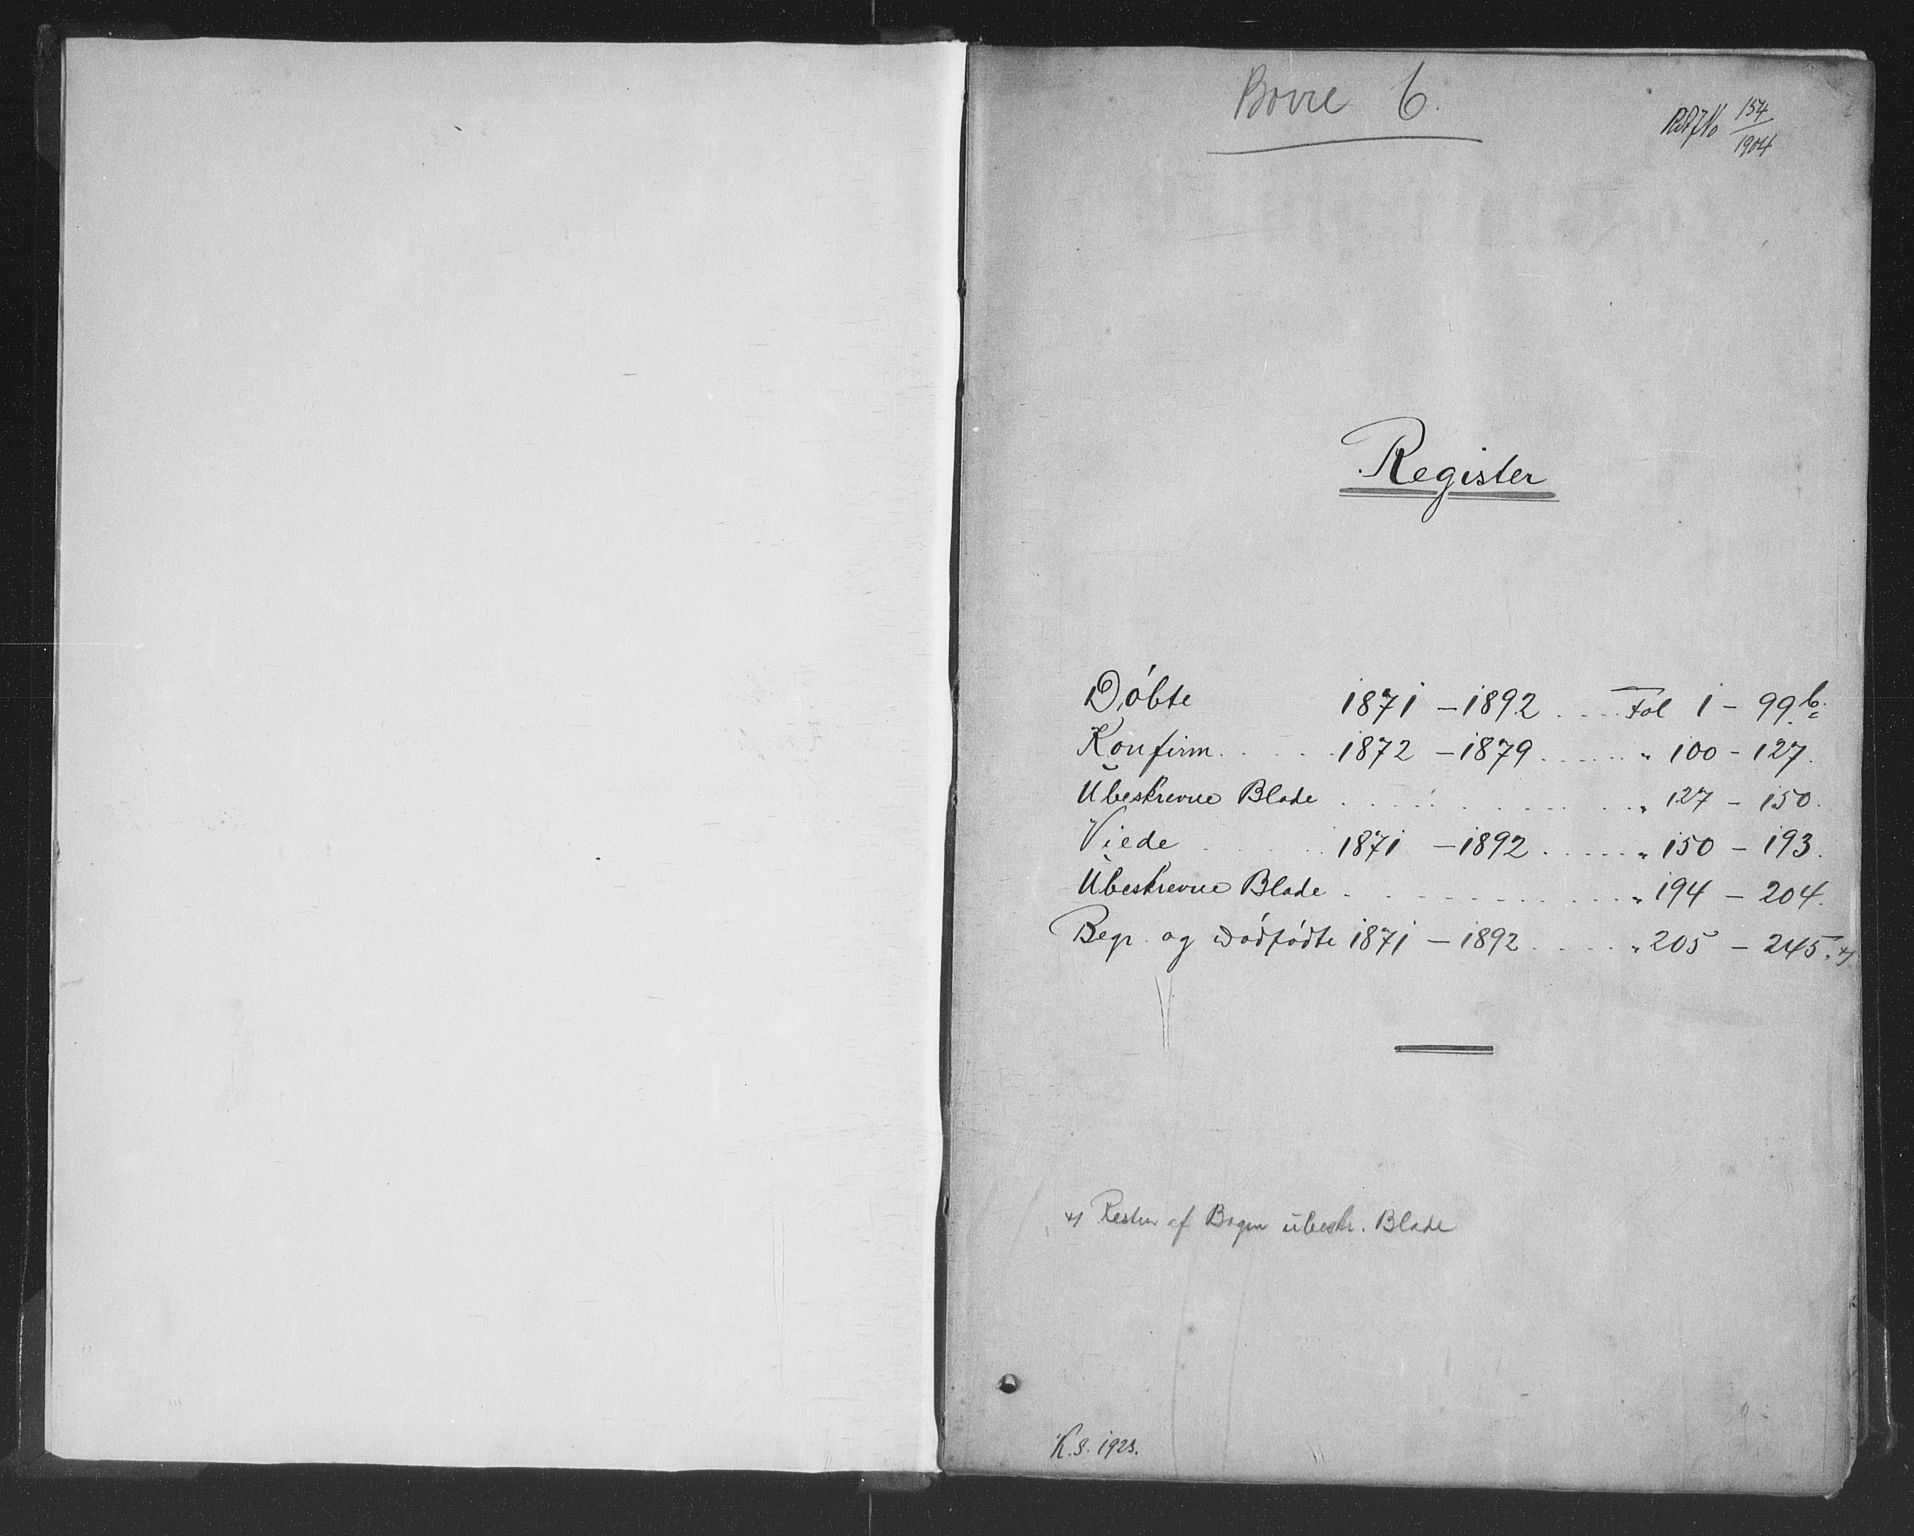 Borre 6.
154
1904
Register
Döbte 1871 - 1892 .... Fol 1 - 99.b.
Konfirm. .... 1872 - 1879 ..... " 100 - 127.
Ubeskrevne Blade ............ " 127 - 150.
Viede .... 1871 - 1892 ..... " 150 - 193.
Ubeskrevne Blade ............ " 194 - 204.
Begr. og Dödfödte 1871 - 1892 ..... " 205 - 245. x)
x) Resten af Bogen ubeskr. Blade
K.S. 1923.